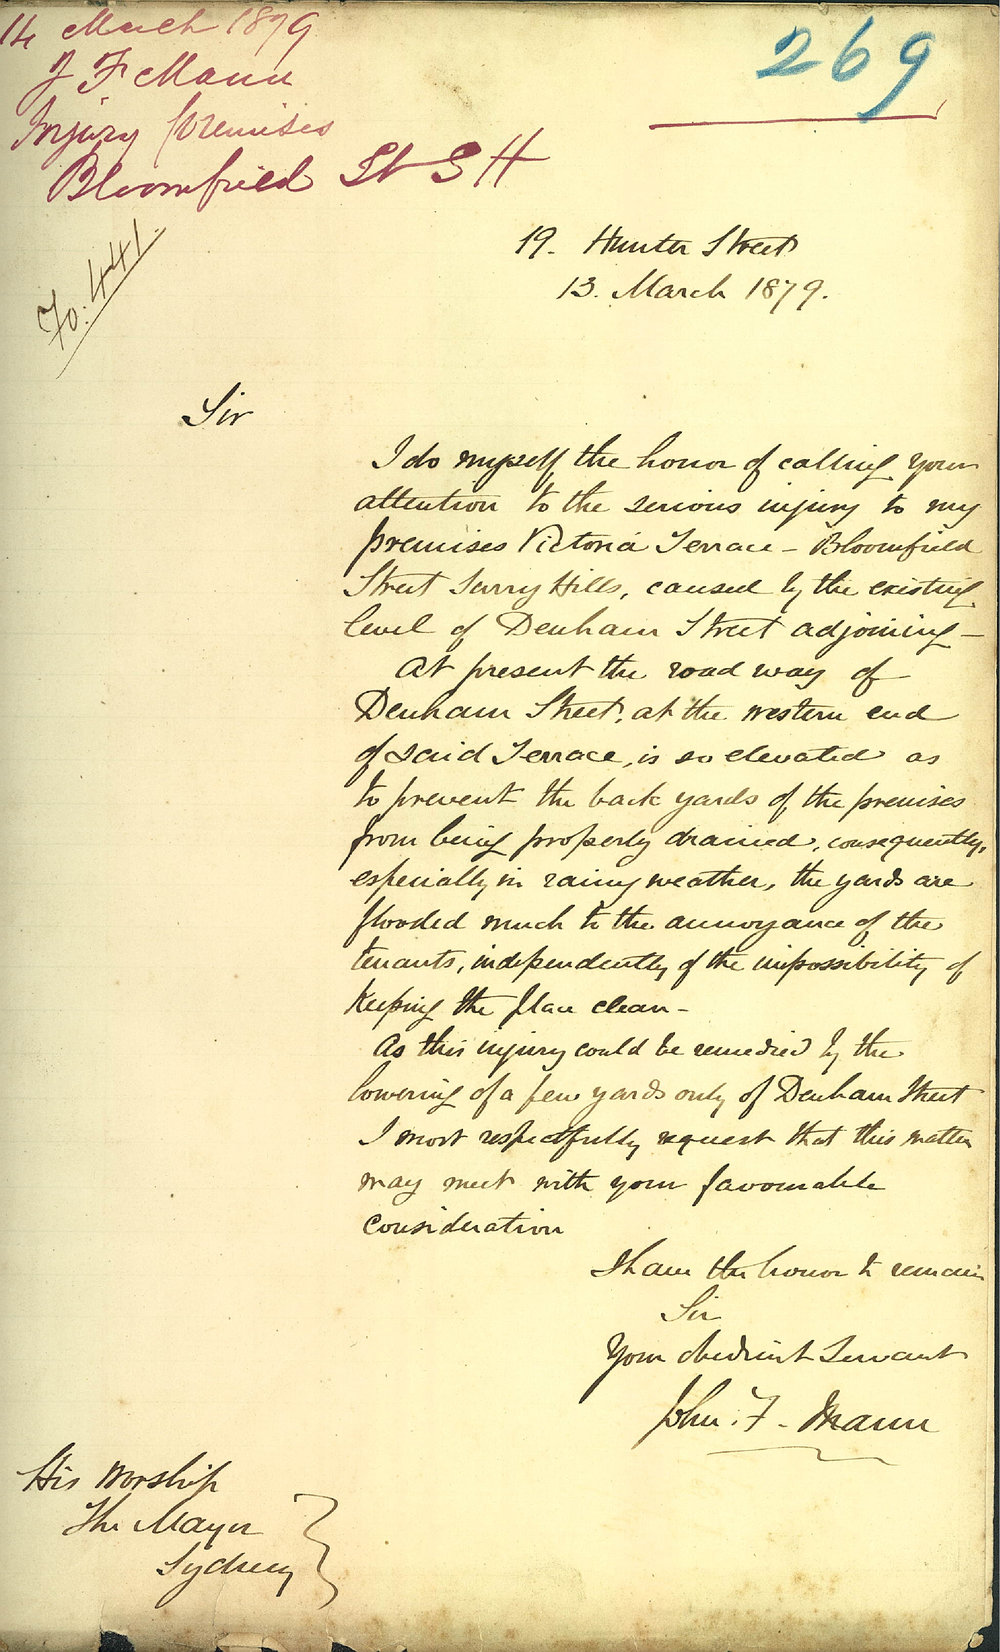 14 March 1879
J F Mann
Injury premises
Bloomfield St S H
269
Fo: 441.
19. Hunter Street
13. March 1879.
Sir
I do myself the honor of calling your
attention to the serious injury to my
premises Victoria Terrace - Bloomfield
Street Surry Hills, caused by the existing
level of Denham Street adjoining -
At present the road way of
Denham Street, at the western end
of said Terrace, is so elevated as
to prevent the back yards of the premises
from being properly drained, consequently,
especially in rainy weather, the yards are
flooded much to the annoyance of the
tenants, independently of the impossibility of
keeping the place clean -
As this injury could be remedied by the
lowering of a few yards only of Denham Street
I most respectfully request that this matter
may meet with your favourable
consideration
I have the honor to remain
Sir
Your obedient Servant
John. F. Mann
His Worship
The Mayor
Sydney